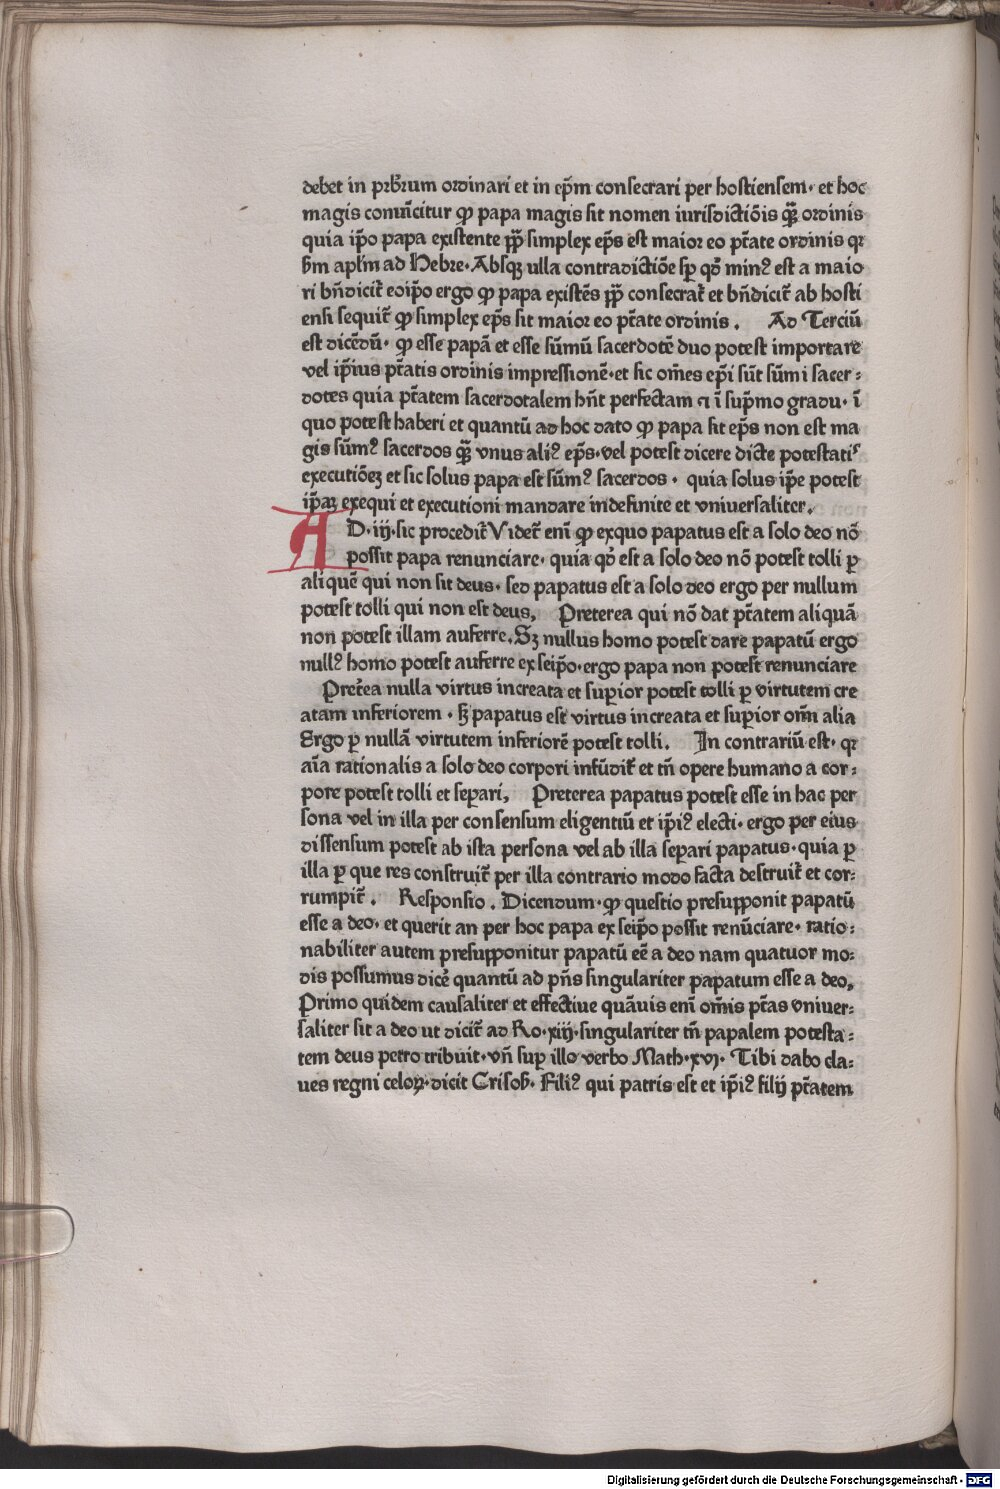 debet in prb̄rum ordinari et in ep̄m consecrari per hostiensem· et hoc
magis conuīcitur ꝙ papa magis sit nomen iurisdictiōis q̄ꝫ ordinis
quia ip̄o papa existente pp̄ simplex ep̄s est maior eo pt̄ate ordinis qꝛ
ẜm aplm̄ ad Hebre· Absqꝫ ulla contradictiōe sꝑ qd̄ minꝰ est a maio
ri bn̄dicit̄ eoip̄o ergo ꝙ papa existēs pp̄ consecrat̄ et bn̄dicit̄ ab hosti
ensi sequit̄ ꝙ simplex ep̄s sit maior eo pt̄ate ordinis . Ad Terciū
est dicēdū· ꝙ esse papā et esse sūmū sacerdotē duo potest importare
vel ip̄ius pt̄atis ordinis impressionē·et sic om̄es ep̄i sūt sūmi sacer⸗
dotes quia pt̄atem sacerdotalem hn̄t perfectam ⁊ ī sup̄mo gradu· ī
quo potest haberi et quantū ad hoc dato ꝙ papa sit ep̄s non est ma
gis sūmꝰ sacerdos q̄ꝫ vnus aliꝰ ep̄s·vel potest dicere dicte potestatis
executiōeꝫ et sic solus papa est sūmꝰ sacerdos · quia solus ip̄e potest
ip̄aꝫ exequi et executioni mandare indefinite et vniuersaliter.
AD·iij·sic procedit̄ Videt̄ enī ꝙ exquo papatus est a solo deo nō
possit papa renunciare· quia qd̄ est a solo deo nō potest tolli ꝑ
aliquē qui non sit deus· sed papatus est a solo deo ergo per nullum
potest tolli qui non est deus, Preterea qui nō dat pt̄atem aliquā
non potest illam auferre.Sꝫ nullus homo potest dare papatū ergo
nullꝰ homo potest auferre ex seip̄o·ergo papa non potest renunciare
Pret̄ea nulla virtus increata et suꝑior potest tolli ꝑ virtutem cre
atam inferiorem · sꝫ papatus est virtus increata et suꝑior om̄i alia
Ergo ꝑ nullā virtutem inferiorē potest tolli. In contrariū est· qꝛ
aīa rationalis a solo deo corpori infūdit̄ et tn̄ opere humano a cor⸗
pore potest tolli et seꝑari, Preterea papatus potest esse in hac per
sona vel in illa per consensum eligentiū et ip̄iꝰ electi· ergo per eius
dissensum potest ab ista persona vel ab illa seꝑari papatus·quia ꝑ
illa ꝑ que res construit̄ per illa contrario modo facta destruit̄ et cor⸗
rumpit̄ . Responsio . Dicendum· ꝙ questio presupponit papatū
esse a deo· et querit an per hoc papa ex seip̄o possit renūciare· ratio⸗
nabiliter autem presupponitur papatū eē a deo nam quatuor mo⸗
dis possumus dicē quantū ad pn̄s singulariter papatum esse a deo,
Primo quidem causaliter et effectiue quāuis enī om̄is pt̄as vniuer⸗
saliter sit a deo ut dicit̄ ad Ro·xiij·singulariter tn̄ papalem potesta⸗
tem deus petro tribuit· vn̄ suꝑ illo verbo Math·xvj· Tibi dabo cla⸗
ues regni celoꝝ·dicit Crisoſt· Filiꝰ qui patris est et ip̄iꝰ filij pt̄atem
Digitalisierung gefördert durch die Deutsche Forschungsgemeinschaft - DFG